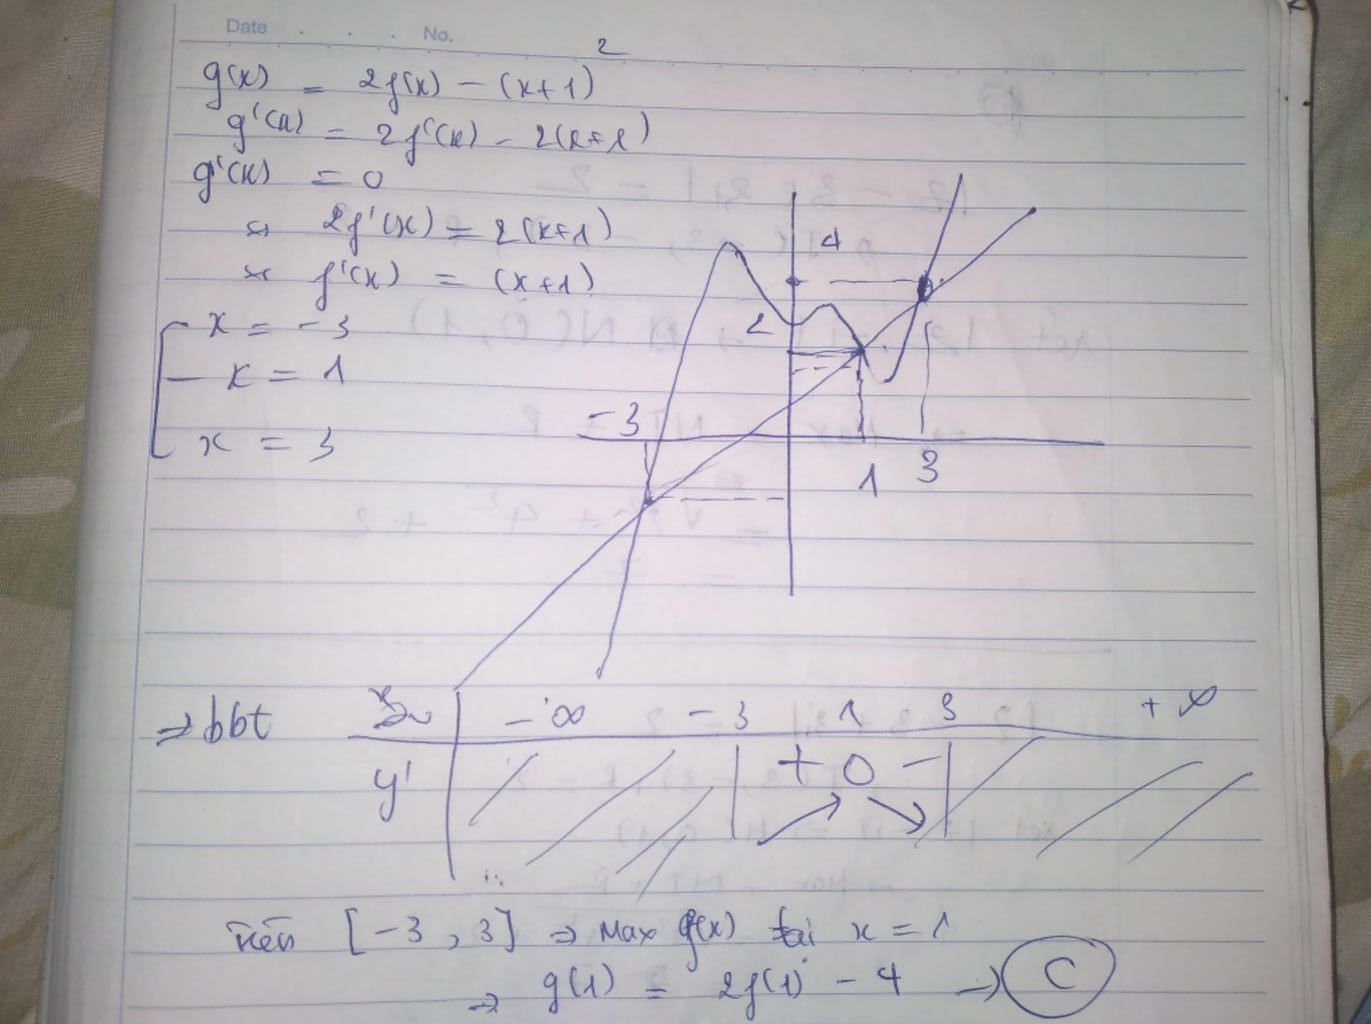 Date . . . . No.
g(x) = 2f(x) - (x+1)²
g'(x) = 2f'(x) - 2(x+1)
g'(x) = 0
⇔ 2f'(x) = 2(x+1)
⇔ f'(x) = (x+1)
x = -3
x = 1
x = 3
4
2
-3
1 3
⇒ bbt x -∞ -3 1 3 +∞
y' + 0 -
trên [-3, 3] ⇒ Max g(x) tại x = 1
→ g(1) = 2f(1) - 4 → C